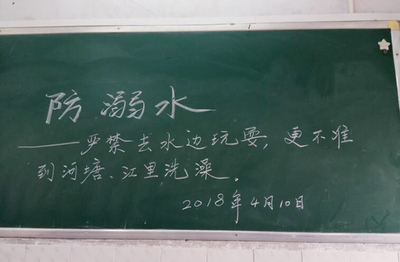 防溺水
——严禁去水边玩耍,更不准
到河塘、江里洗澡。
2018年4月10日